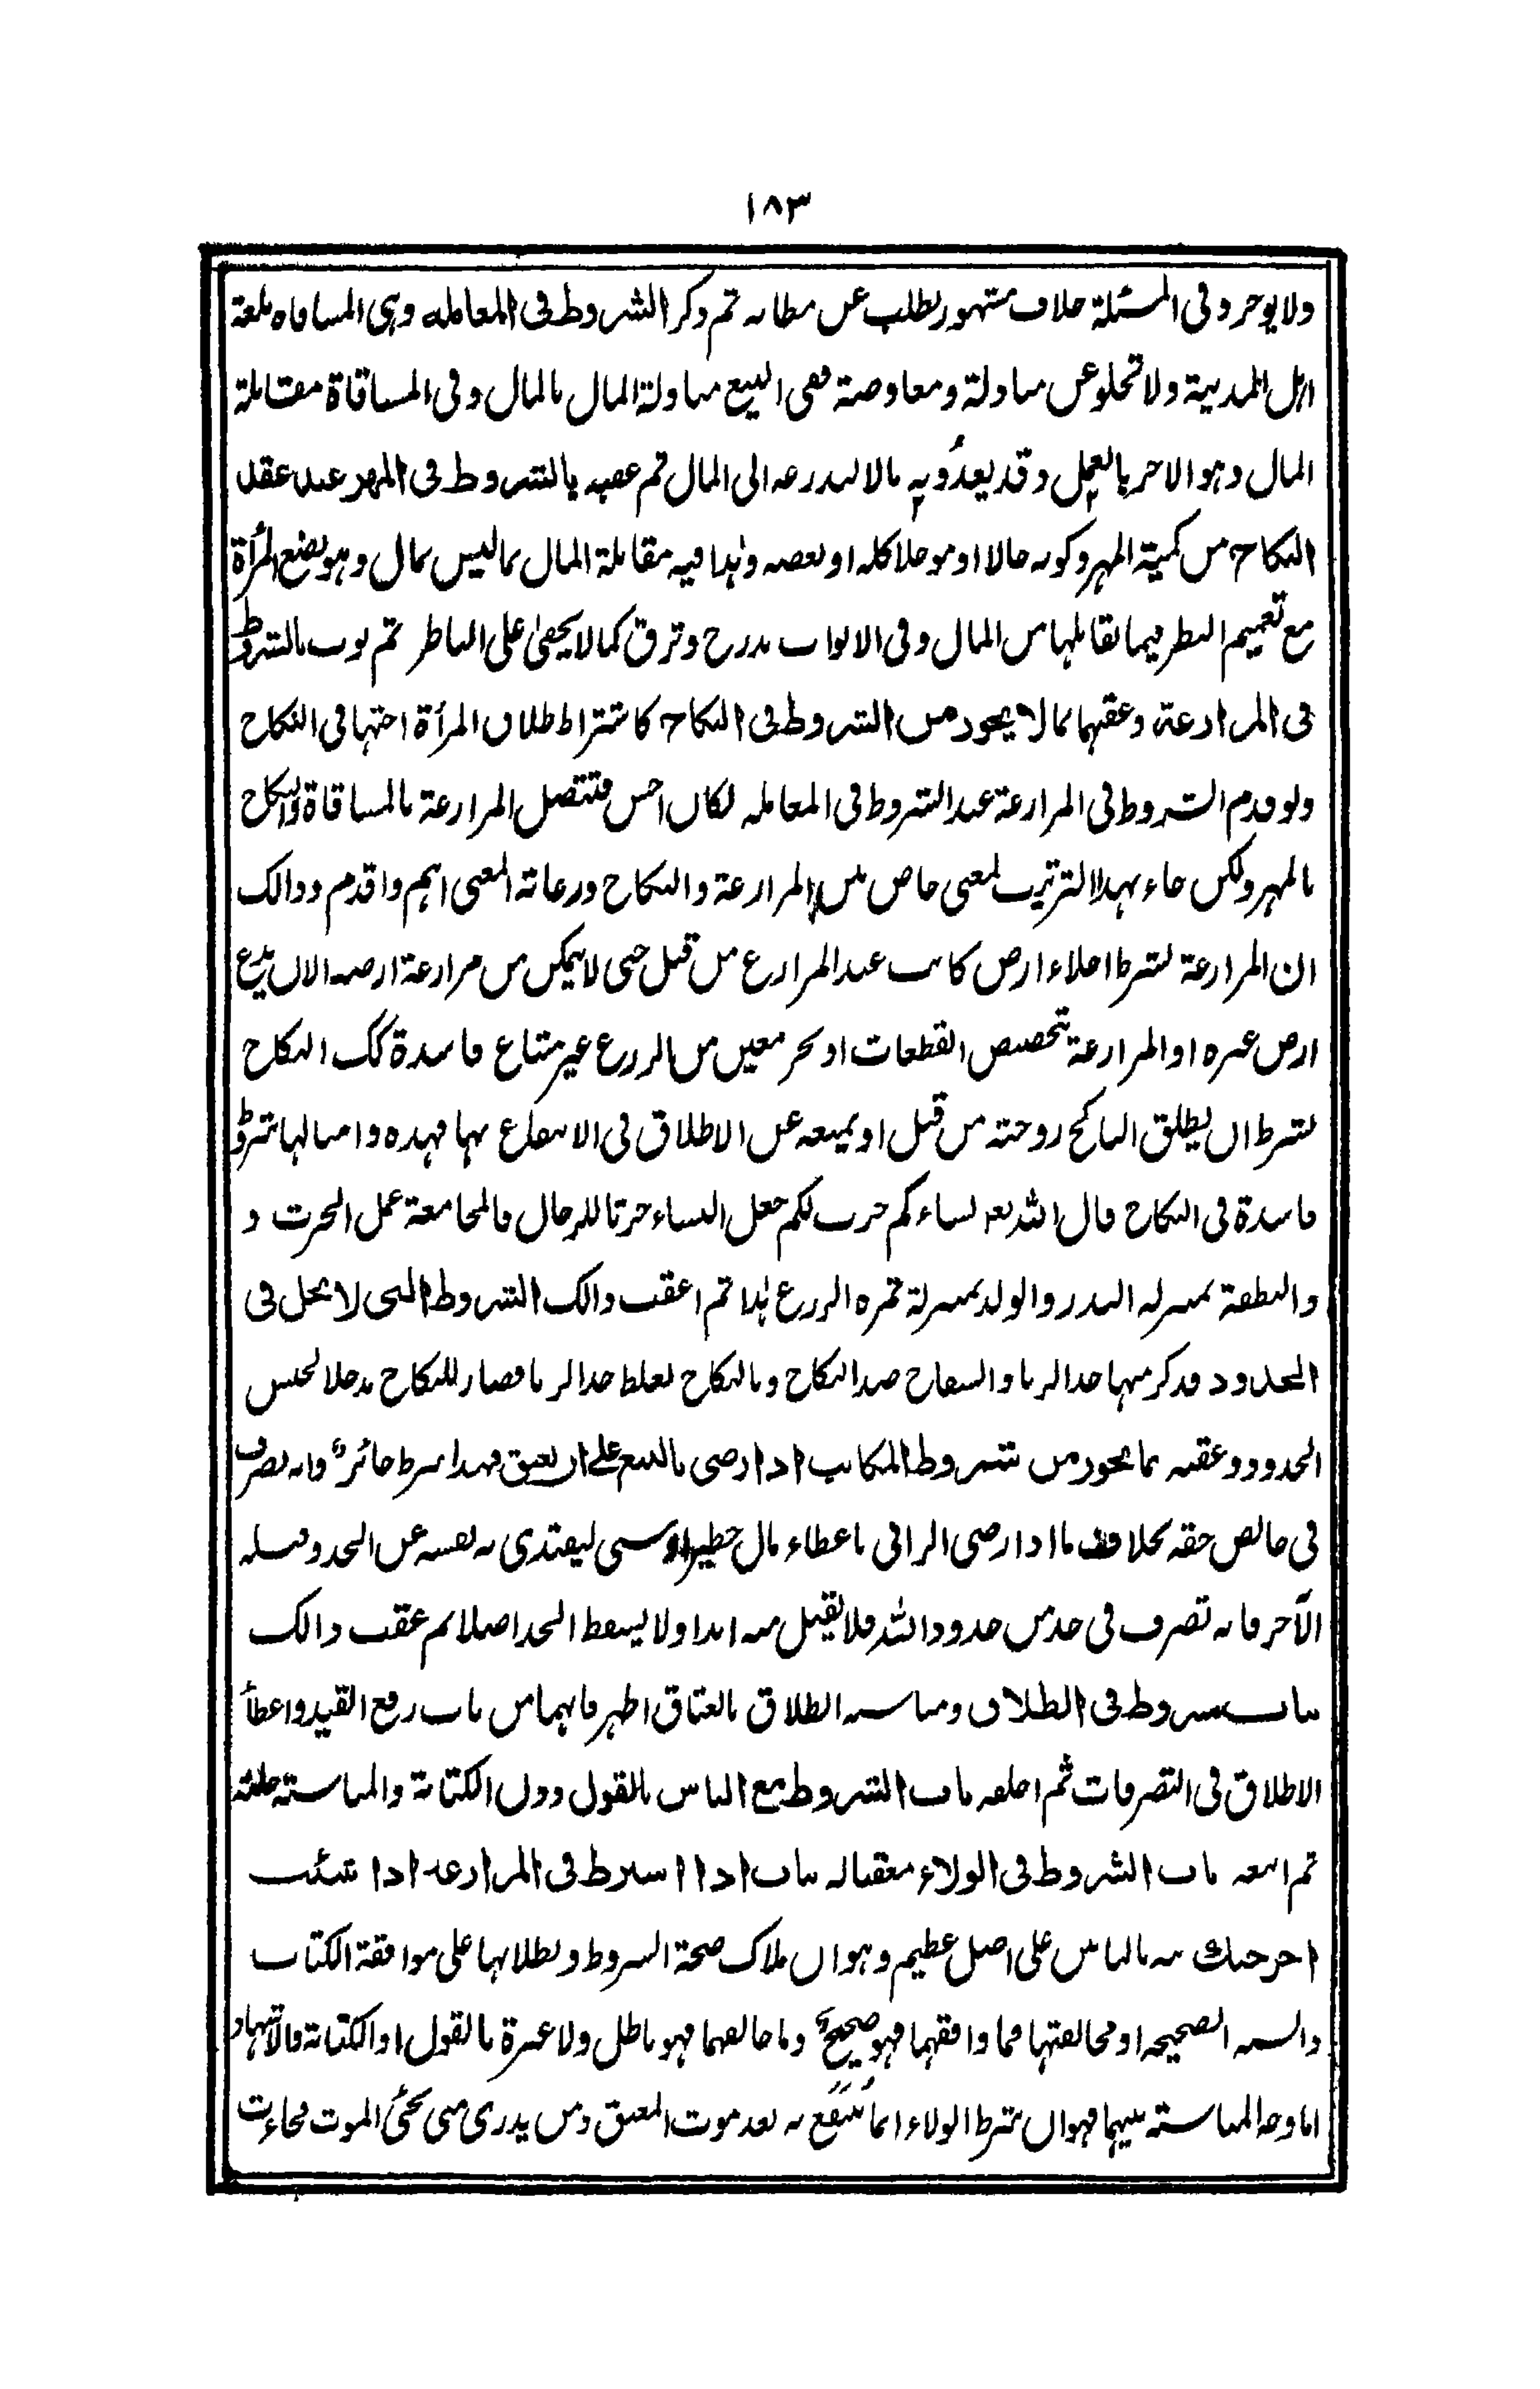 ١٨٣
ولا يوجر وفى المسئلة خلاف مشهور يطلب عن مظانه ثم ذكر الشروط فى المعامله وہى المساقاه بلغة
اہل المدينة ولا تخلو عن مبادلة ومعاوضة ففى البيع مبادلة المال بالمال وفى المساقاة مقابلة
المال وہو الاجر بالعمل وقد يعد ويه بالا لبذر عه الى المال ثم عقبه بالشروط فى المهر عند عقد
النكاح من كمية المهر وكونه حالا او موجلا كله او بعضه وہذا فيه مقابلة المال بما ليس بمال وہو بضع المرأة
مع تعميم النظر فيما يقابلها من المال وفى الابواب تدرج وترق كما لا يخفىٰ على الناظر ثم بوب بالشروط
فى المزارعة وعقبها بما لا يجوز من الشروط فى النكاح كاشتراط طلاق المرأة اختها فى النكاح
ولو قدم الشروط فى المزارعة عند الشروط فى المعامله لكان احسن فتتصل المزارعة بالمساقاة والنكاح
بالمهر ولكن جاء بهذا الترتيب لمعنى خاص بين المزارعة والنكاح ورعاية المعنى اہم واقدم وذالك
ان المزارعة بشرط اخلاء ارض كانت عند المزارع من قبل حتى لا يمكن من مزارعة ارضه الا ان يدع
ارض غيره او المزارعة بتخصيص القطعات او بحر معين من الزرع غير مشاع فاسدة كك النكاح
بشرط ان يطلق الناكح زوجته من قبل او يمنعه عن الاطلاق فى الانتفاع بها فهذه وامثالها شروط
فاسدة فى النكاح قال الله تعہ نساءكم حرث لكم جعل النساء حرثا للرجال فالمجامعة عمل الحرث و
والنطفة بمنزله البذر والولد بمنزلة ثمره الزرع ہذا ثم اعقب ذالك الشروط التى لا يحل فى
الحدود فذكر منها حد الزنا والسفاح ضد النكاح وبالنكاح يغلظ حد الزنا فصار للنكاح مدخلا لجنس
الحدود وعقبه بما يجوز من شروط المكاتب اذا رضى بالبيع على ان يعتق فهذا شرط جائز وانه تصرف
فى خالص حقه بخلاف ما اذا رضى الزانى باعطاء مال خطير او شىء ليفتدى به نفسه عن الحد وقبله
الآخر فانه تصرف فى حد من حدود الله فلا يقبل منه ابدا ولا يسقط الحد اصلا ثم عقب ذالك
بباب شروط فى الطلاق ومناسبه الطلاق بالعتاق اظهر فانهما من باب رفع القيد واعطأ
الاطلاق فى التصرفات ثم اخلفه باب الشروط مع الناس بالقول دون الكتابة والمناسبته جلية
ثم اتبعه باب الشروط فى الولاء معقبا له بباب اذا اشترط فى المزارعه اذا شئت
اخرجتك منه بالناس على اصل عظيم وہو ان ملاك صحة الشروط وبطلانها على موافقة الكتاب
والسنه الصحيحه او مخالفتها فما وافقهما فهو صحيح وما خالفهما فهو باطل ولا عبرة بالقول او الكتابة والاشهاد
اما وجه المناسبته بينهما فهو ان شرط الولاء انما ينتفع به بعد موت المعتق ومن يدرى متى يجئى الموت فجاءت